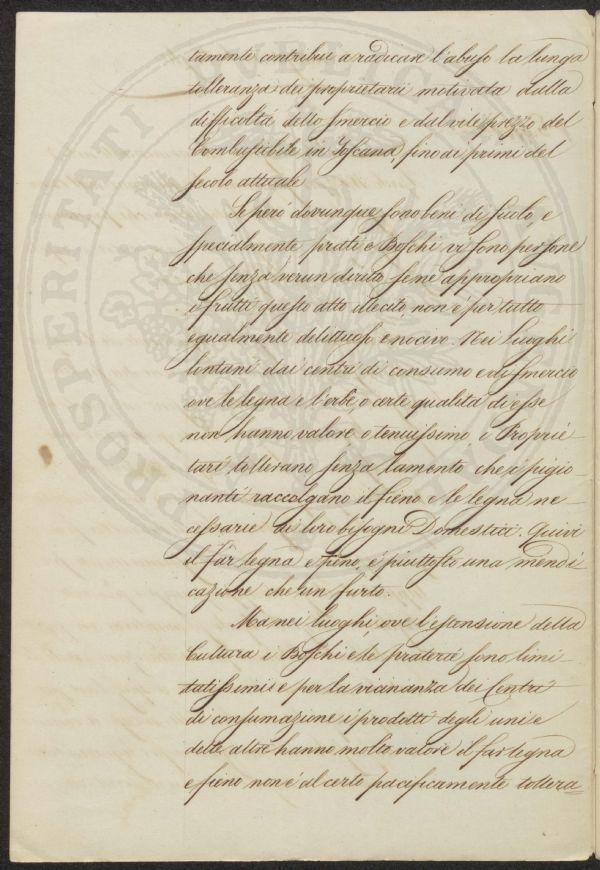 tamente contribuì a radicare l'abuso la lunga
tolleranza dei proprietarii motivata dalla
difficoltà dello smercio e dal vile prezzo del
Combustibile in Toscana, fino ai primi del
secolo attuale
Se però dovunque sono beni di suolo, e
specialmente prati e Boschi vi sono persone
che senza verun diretto se ne appropriano
i frutti questo atto illecito non è per tutto
egualmente delittuoso e nocivo. Nei luoghi
lontani dai centri di consumo e di smercio
ove le legna e l'erbe o certe qualità di esse
non hanno valore o tenuissimo i Proprie-
tari tollerano senza lamento che i pigio-
nanti raccolgano il fieno e le legna ne-
cessarie ai loro bisogni Domestici. Quivi
il far legna e fieno, è piuttosto una mendi
cazione che un furto.
Ma nei luoghi ove l'estensione della
Cultura i Boschi e le praterie sono limi-
tatissimi e per la vicinanza dei Centri
di consumazione i prodotti degli uni e
delle altre hanno molto valore il far legna
e fieno non è al certo pacificamente tollera
PROSPERITATI PUBLICAE